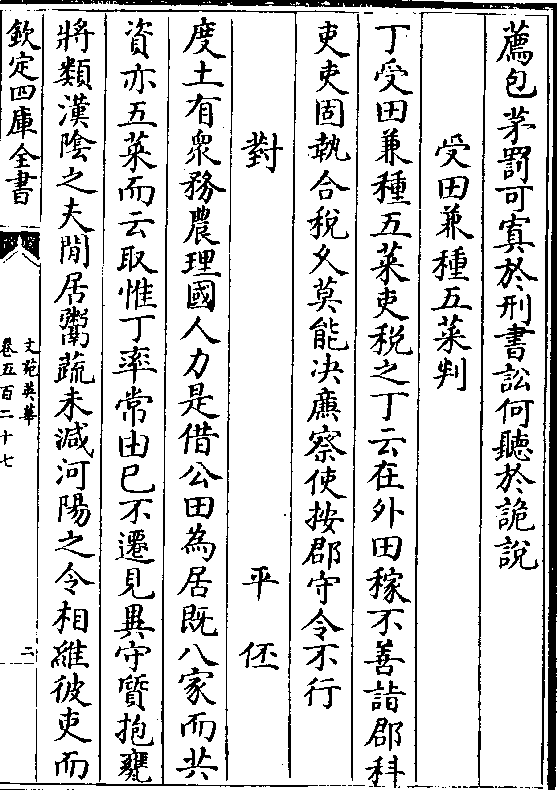 薦包茅罰可寘於刑書訟何聽於詭說
受田兼種五菜判
丁受田兼種五菜吏税之丁云在外田稼不善詣郡科
吏吏固執合税久莫能决廉察使按郡守令不行
對　平伾
度土有衆務農理國人力是借公田為居既八家而共
資亦五菜而云取惟丁率常由已不遷見異守質抱甕
將類漢陰之夫閒居鬻蔬未減河陽之令相維彼吏而
欽定四庫全書
文苑英華
卷五百二十七
二